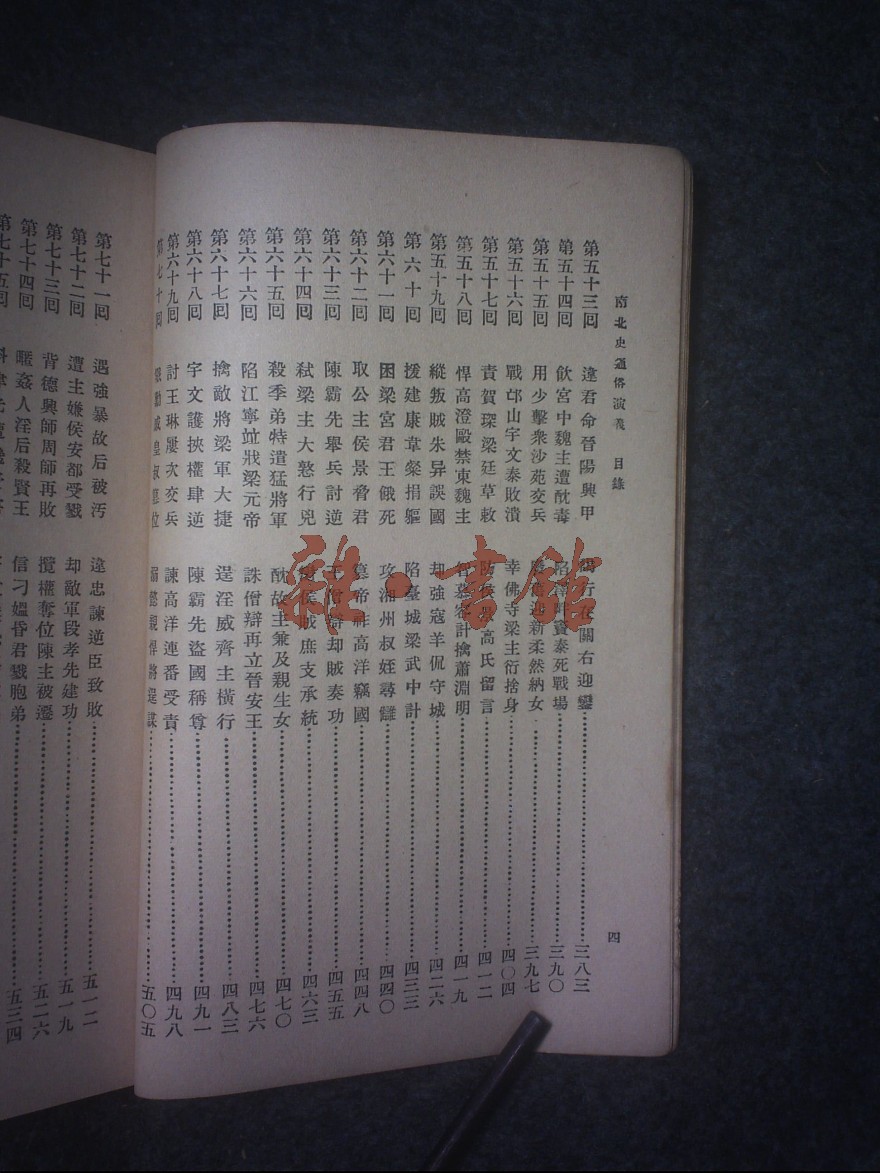 南北史通俗演義 目錄 四
第五十三回 違君命晉陽興甲 行在關右迎鑾 三八三
第五十四回 飮宮中魏主遭酖毒 竇泰死戰場 三九〇
第五十五回 用少擊衆沙苑交兵 新柔然納女 三九七
第五十六回 戰邙山宇文泰敗潰 幸佛寺梁主衍捨身 四〇四
第五十七回 責賀琛梁廷草敕 防侯景高氏留言 四一二
第五十八回 悍高澄毆禁東魏主 智慕容計擒蕭淵明 四一九
第五十九回 縱叛賊朱异誤國 却強寇羊侃守城 四二六
第六十回 援建康韋粲捐軀 陷臺城梁武中計 四三三
第六十一回 困梁宮君王餓死 攻湘州叔姪尋讎 四四〇
第六十二回 取公主侯景脅君 篡帝祚高洋竊國 四四八
第六十三回 陳霸先舉兵討逆 王僧辯却賊奏功 四五五
第六十四回 弒梁主大憝行兇 侯賊庶支承統 四六三
第六十五回 殺季弟特遣猛將軍 酖故主兼及親生女 四七〇
第六十六回 陷江寧竝戕梁元帝 誅僧辯再立晉安王 四七六
第六十七回 擒敵將梁軍大捷 逞淫威齊主橫行 四八三
第六十八回 宇文護挾權肆逆 陳霸先盜國稱尊 四九一
第六十九回 討王琳屢次交兵 諫高洋連番受責 四九八
第七十回 戚皇叔篡位 懿親悍將逞謀 五〇五
第七十一回 遇強暴故后被汚 違忠諫逆臣致敗 五一二
第七十二回 遭主嫌侯安都受戮 却敵軍段孝先建功 五一九
第七十三回 背德興師周師再敗 攬權奪位陳主被遷 五二六
第七十四回 暱姦人淫后殺賢王 信刁媼昏君戮胞弟 五三四
第七十五回
雜·書館